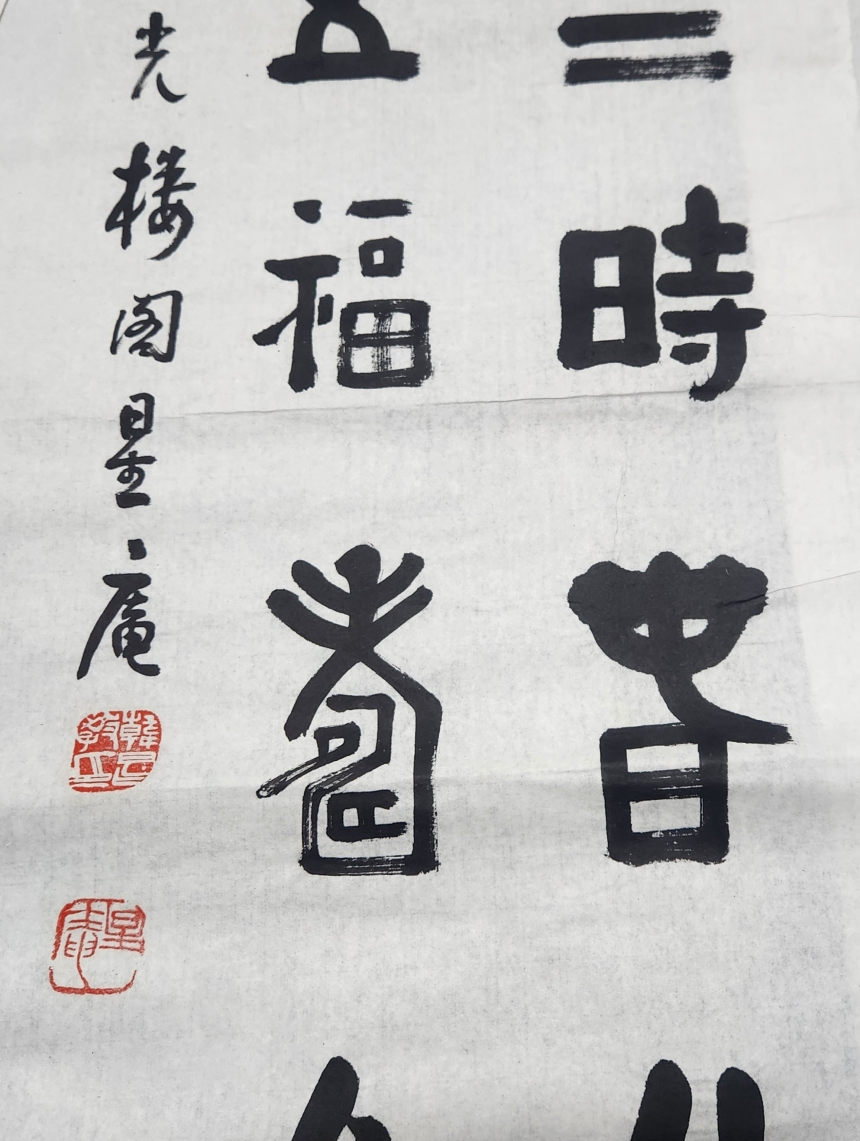 時春
五福壽
光楼阁星庵
星庵